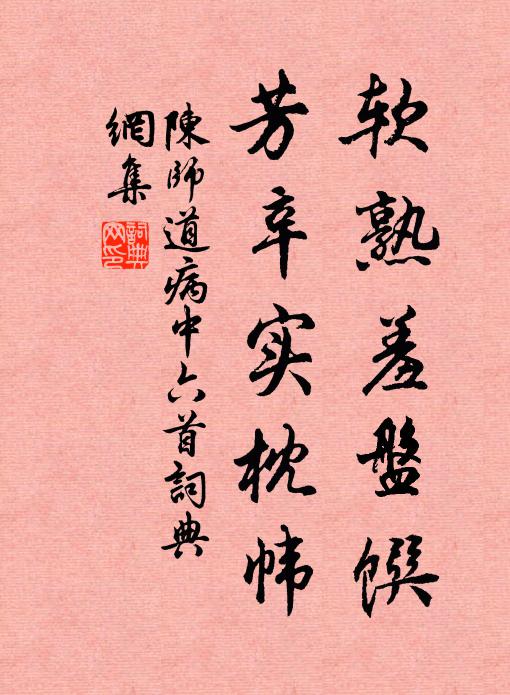 软熟羞盤馔
芳辛实枕帏
陳師道病中六首詞典
網集
詞典
网印